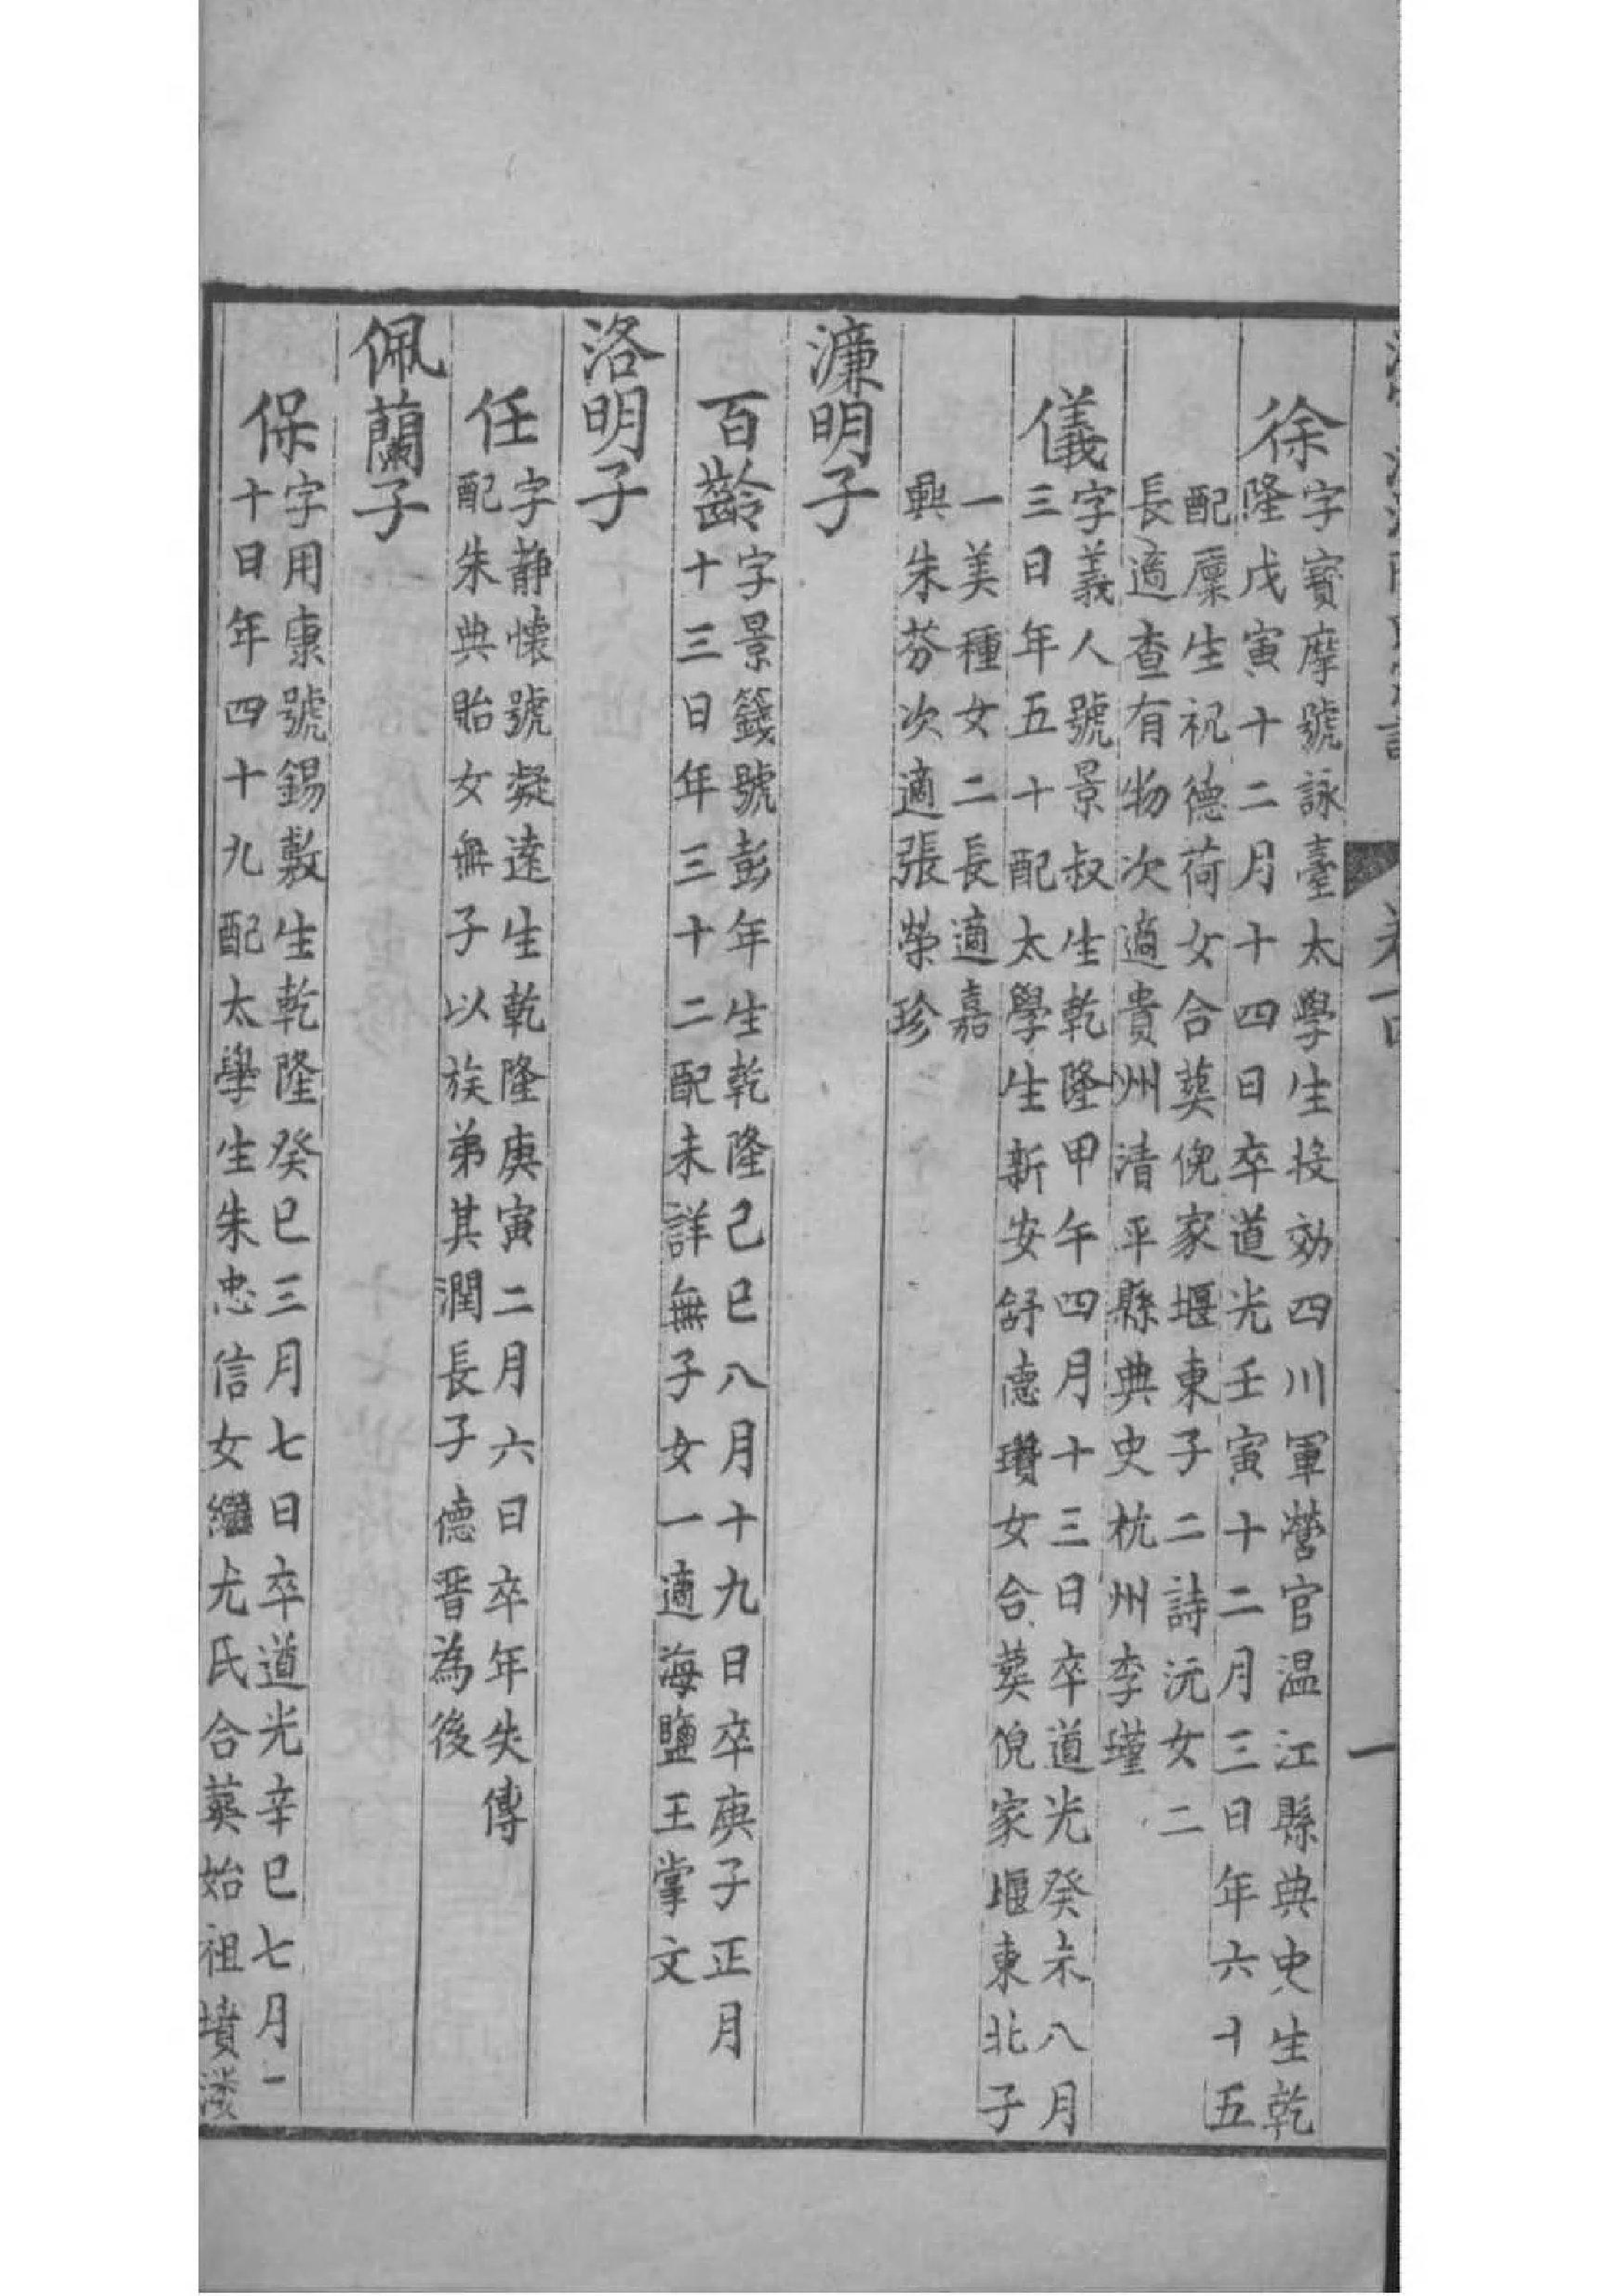 徐
字寶摩號詠臺太學生投効四川軍營官温江縣典史生乾
隆戊寅十二月十四日卒道光壬寅十二月三日年六十五
配廩生祝德荷女合葬倪家堰東子二詩沅女二
長適查有物次適貴州清平縣典史杭州李瑾
儀
字義人號景叔生乾隆甲午四月十三日卒道光癸未八月
三日年五十配太學生新安舒德瓚女合葬倪家堰東北子
一美種女二長適嘉
興朱芬次適張榮珍
濂明子
百齡
字景籛號彭年生乾隆己巳八月十九日卒庚子正月
十三日年三十二配未詳無子女一適海鹽王掌文
洛明子
任
字靜懷號凝遠生乾隆庚寅二月六日卒年失傳
配朱典貽女無子以族弟其潤長子德晋為後
佩蘭子
保
字用康號錫敷生乾隆癸巳三月七日卒道光辛巳七月一
十日年四十九配太學生朱忠信女繼尤氏合葬始祖墳